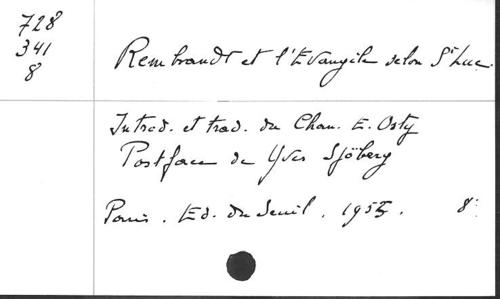 728
341
8
Rembrandt et l'Evangile selon St Luc.
Introd. et trad. du Chan. E. Osty
Postface de Yves Sjöberg
Paris. Ed. du Seuil. 1955. 8°